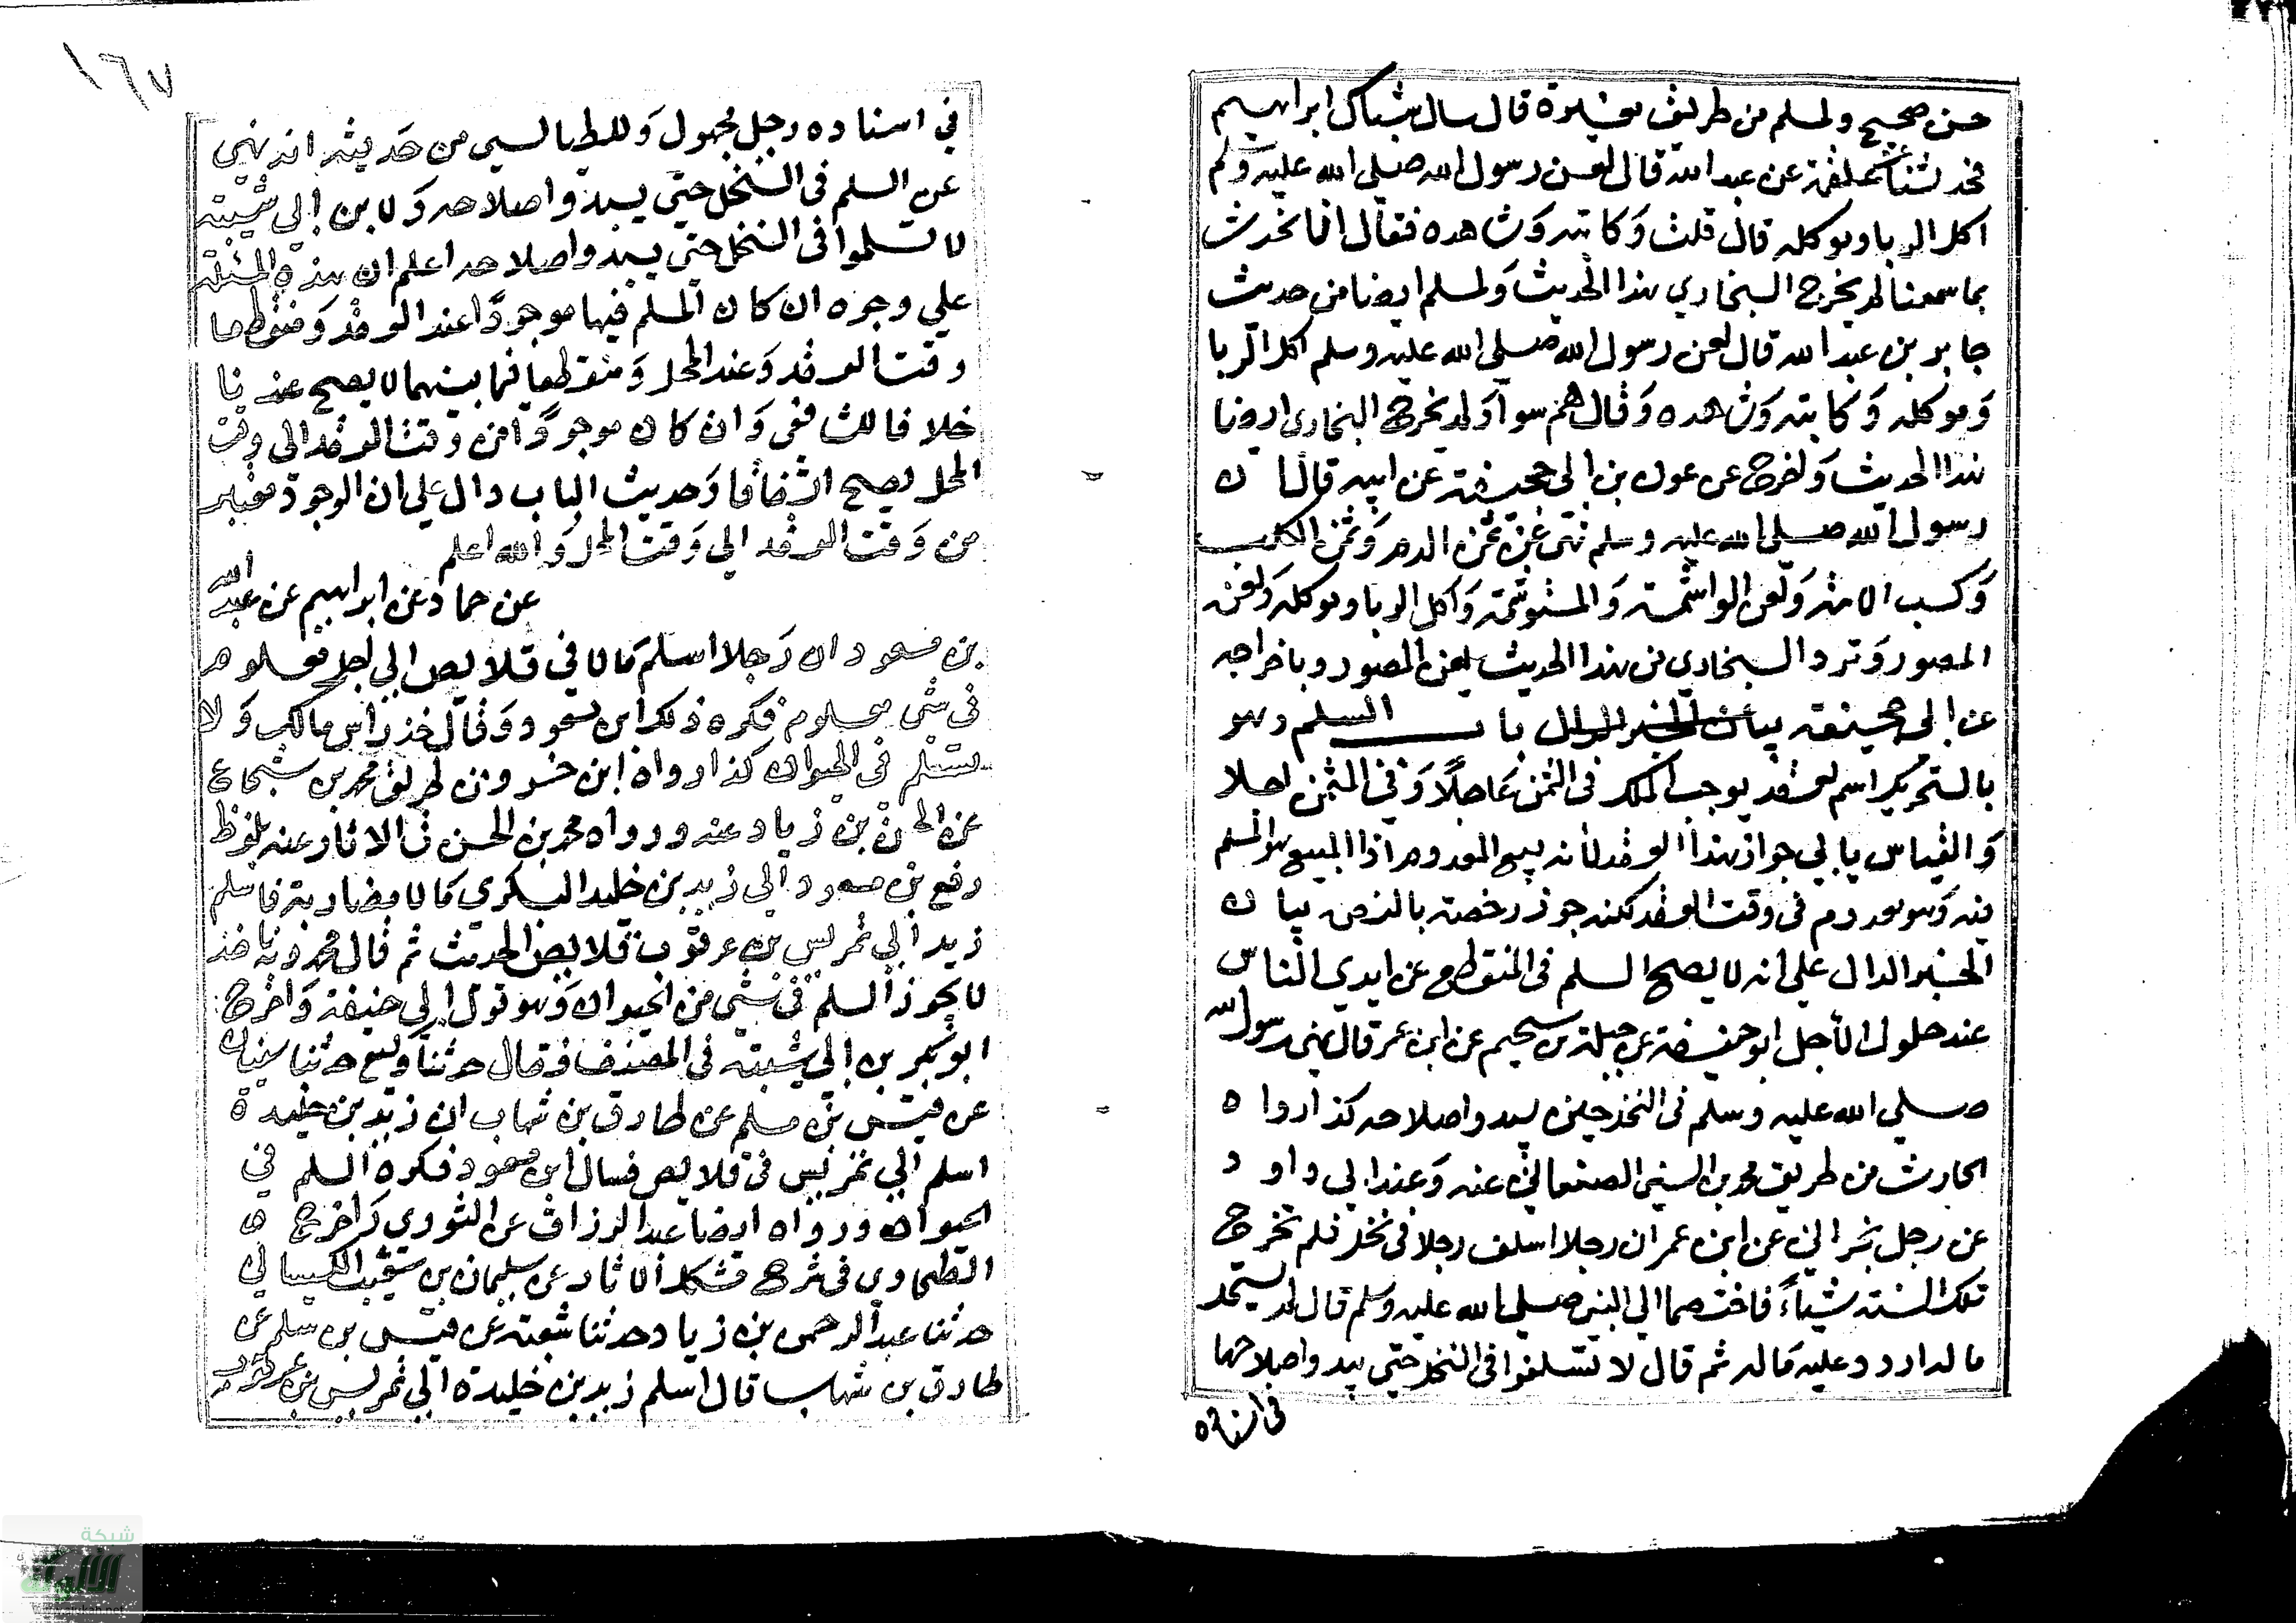 حسن صحيح ولمسلم من طريق مغيرة قال سال شباك ابراهيم
فحدثنا علقمة عن عبد الله قال لعن رسول الله صلي الله عليه وسلم
اكل الربا وموكله قال قلت وكاتبه وشاهده فقال انما نحدث
بما سمعنا لم يخرج البخاري هذا الحديث ولمسلم ايضا من حديث
جابر بن عبد الله قال لعن رسول الله صلي الله عليه وسلم اكل الربا
وموكله وكاتبه وشاهده وقال هم سوآ ولم يخرج البخاري ايضا
هذا الحديث واخرج عن عون بن ابي جحيفة عن ابيه قال ان
رسول الله صلي الله عليه وسلم نهي عن ثمن الدم وثمن الكلب
وكسب الامة ولعن الواشمة والمستوشمة واكل الربا وموكله ولعن
المصور وتفرد البخاري من هذا الحديث بلعن المصور وباخراجه
عن ابي جحيفة بيان الخبر الدال باب السلم وهو
بالتحريك اسم لعقد يوجب الملك في الثمن عاجلا وفي المثمن اجلا
والقياس يابي جواز هذا العقد لانه بيع المعدوم اذا المبيع هو المسلم
فيه وهو معدوم في وقت العقد لكنه جوز رخصة بالنص بيان
الخبر الدال علي انه لا يصح السلم في المنقطع عن ايدي الناس
عند حلول الاجل ابو حنيفة عن جبلة بن سحيم عن ابن عمر قال نهي رسول الله
صلي الله عليه وسلم في النخل حتي يبدو اصلاحه كذا رواه
الحارث من طريق محمد بن الصنعاني عنه وعند ابي داود
عن رجل نجراني عن ابن عمر ان رجلا اسلف رجلا في نخل فلم تخرج
تلك السنة شياء فاختصما الي النبي صلي الله عليه وسلم قال لم يستحل
ماله اردد عليه ماله ثم قال لا تسلفوا في النخل حتي يبدو اصلاحها
في اسناده
١٦٧
في اسناده رجل مجهول وللطيالسي من حديثه انه نهي
عن السلم في النخل حتي يبدو اصلاحه ولابن ابي شيبة
لا تسلموا في النخل حتي يبدو اصلاحه اعلم ان هذه المسئلة
علي وجوه ان كان المسلم فيها موجودا عند العقد ومنقطعا
وقت العقد وعند المحل ومنقطعا فيما بينهما لا يصح عندنا
خلافا للشافعي وان كان موجودا من وقت العقد الي وقت
المحل يصح اتفاقا وحديث الباب دال علي ان الوجود معتبر
من وقت العقد الي وقت المحل والله اعلم
عن حماد عن ابراهيم عن عبد الله
بن مسعود ان رجلا اسلم مالا في قلايص الي اجل معلوم
في شي معلوم فكره ذلك ابن مسعود وقال خذ راس مالك ولا
تسلم في الحيوان كذا رواه ابن خسرو من طريق محمد بن شجاع
عن الحسن بن زياد عنه ورواه محمد بن الحسن في الاثار عنه بلفظ
دفع بن مسعود الي زيد بن خليد البكري مالا مضاربة فاسلم
زيد الي عتريس بن عرقوب قلايص الحديث ثم قال محمد وبه ناخذ
لا يجوز السلم في شي من الحيوان وهو قول ابي حنيفة واخرج
ابو بكر بن ابي شيبة في المصنف فقال حدثنا وكيع حدثنا سفيان
عن قيس بن مسلم عن طارق بن شهاب ان زيد بن خليدة
اسلم الي عتريس في قلايص فسال ابن مسعود فكره السلم في
الحيوان ورواه ايضا عبد الرزاق عن الثوري واخرجه
الطحاوي في شرح مشكل الاثار عن سليمان بن شعيب الكيساني
حدثنا عبد الرحمن بن زياد حدثنا شعبة عن قيس بن مسلم عن
طارق بن شهاب قال اسلم زيد بن خليدة الي عتريس بن عرقوب
شبكة
الألوكة